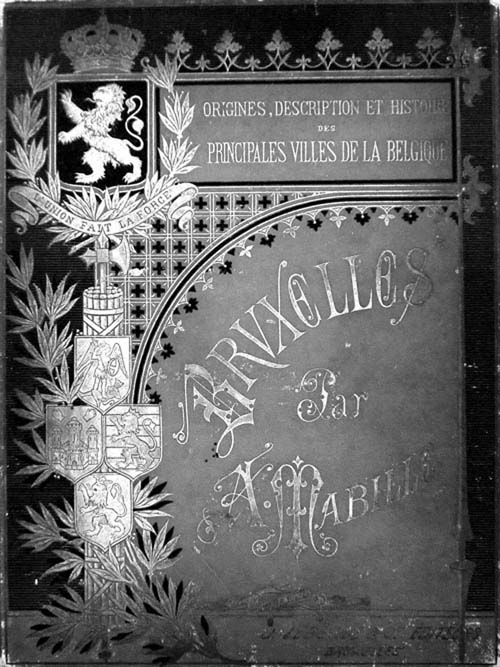 ORIGINES, DESCRIPTION ET HISTOIRE
DES
PRINCIPALES VILLES DE LA BELGIQUE
L'UNION FAIT LA FORCE
BRUXELLES
Par
A. MABILLE
BRUXELLES